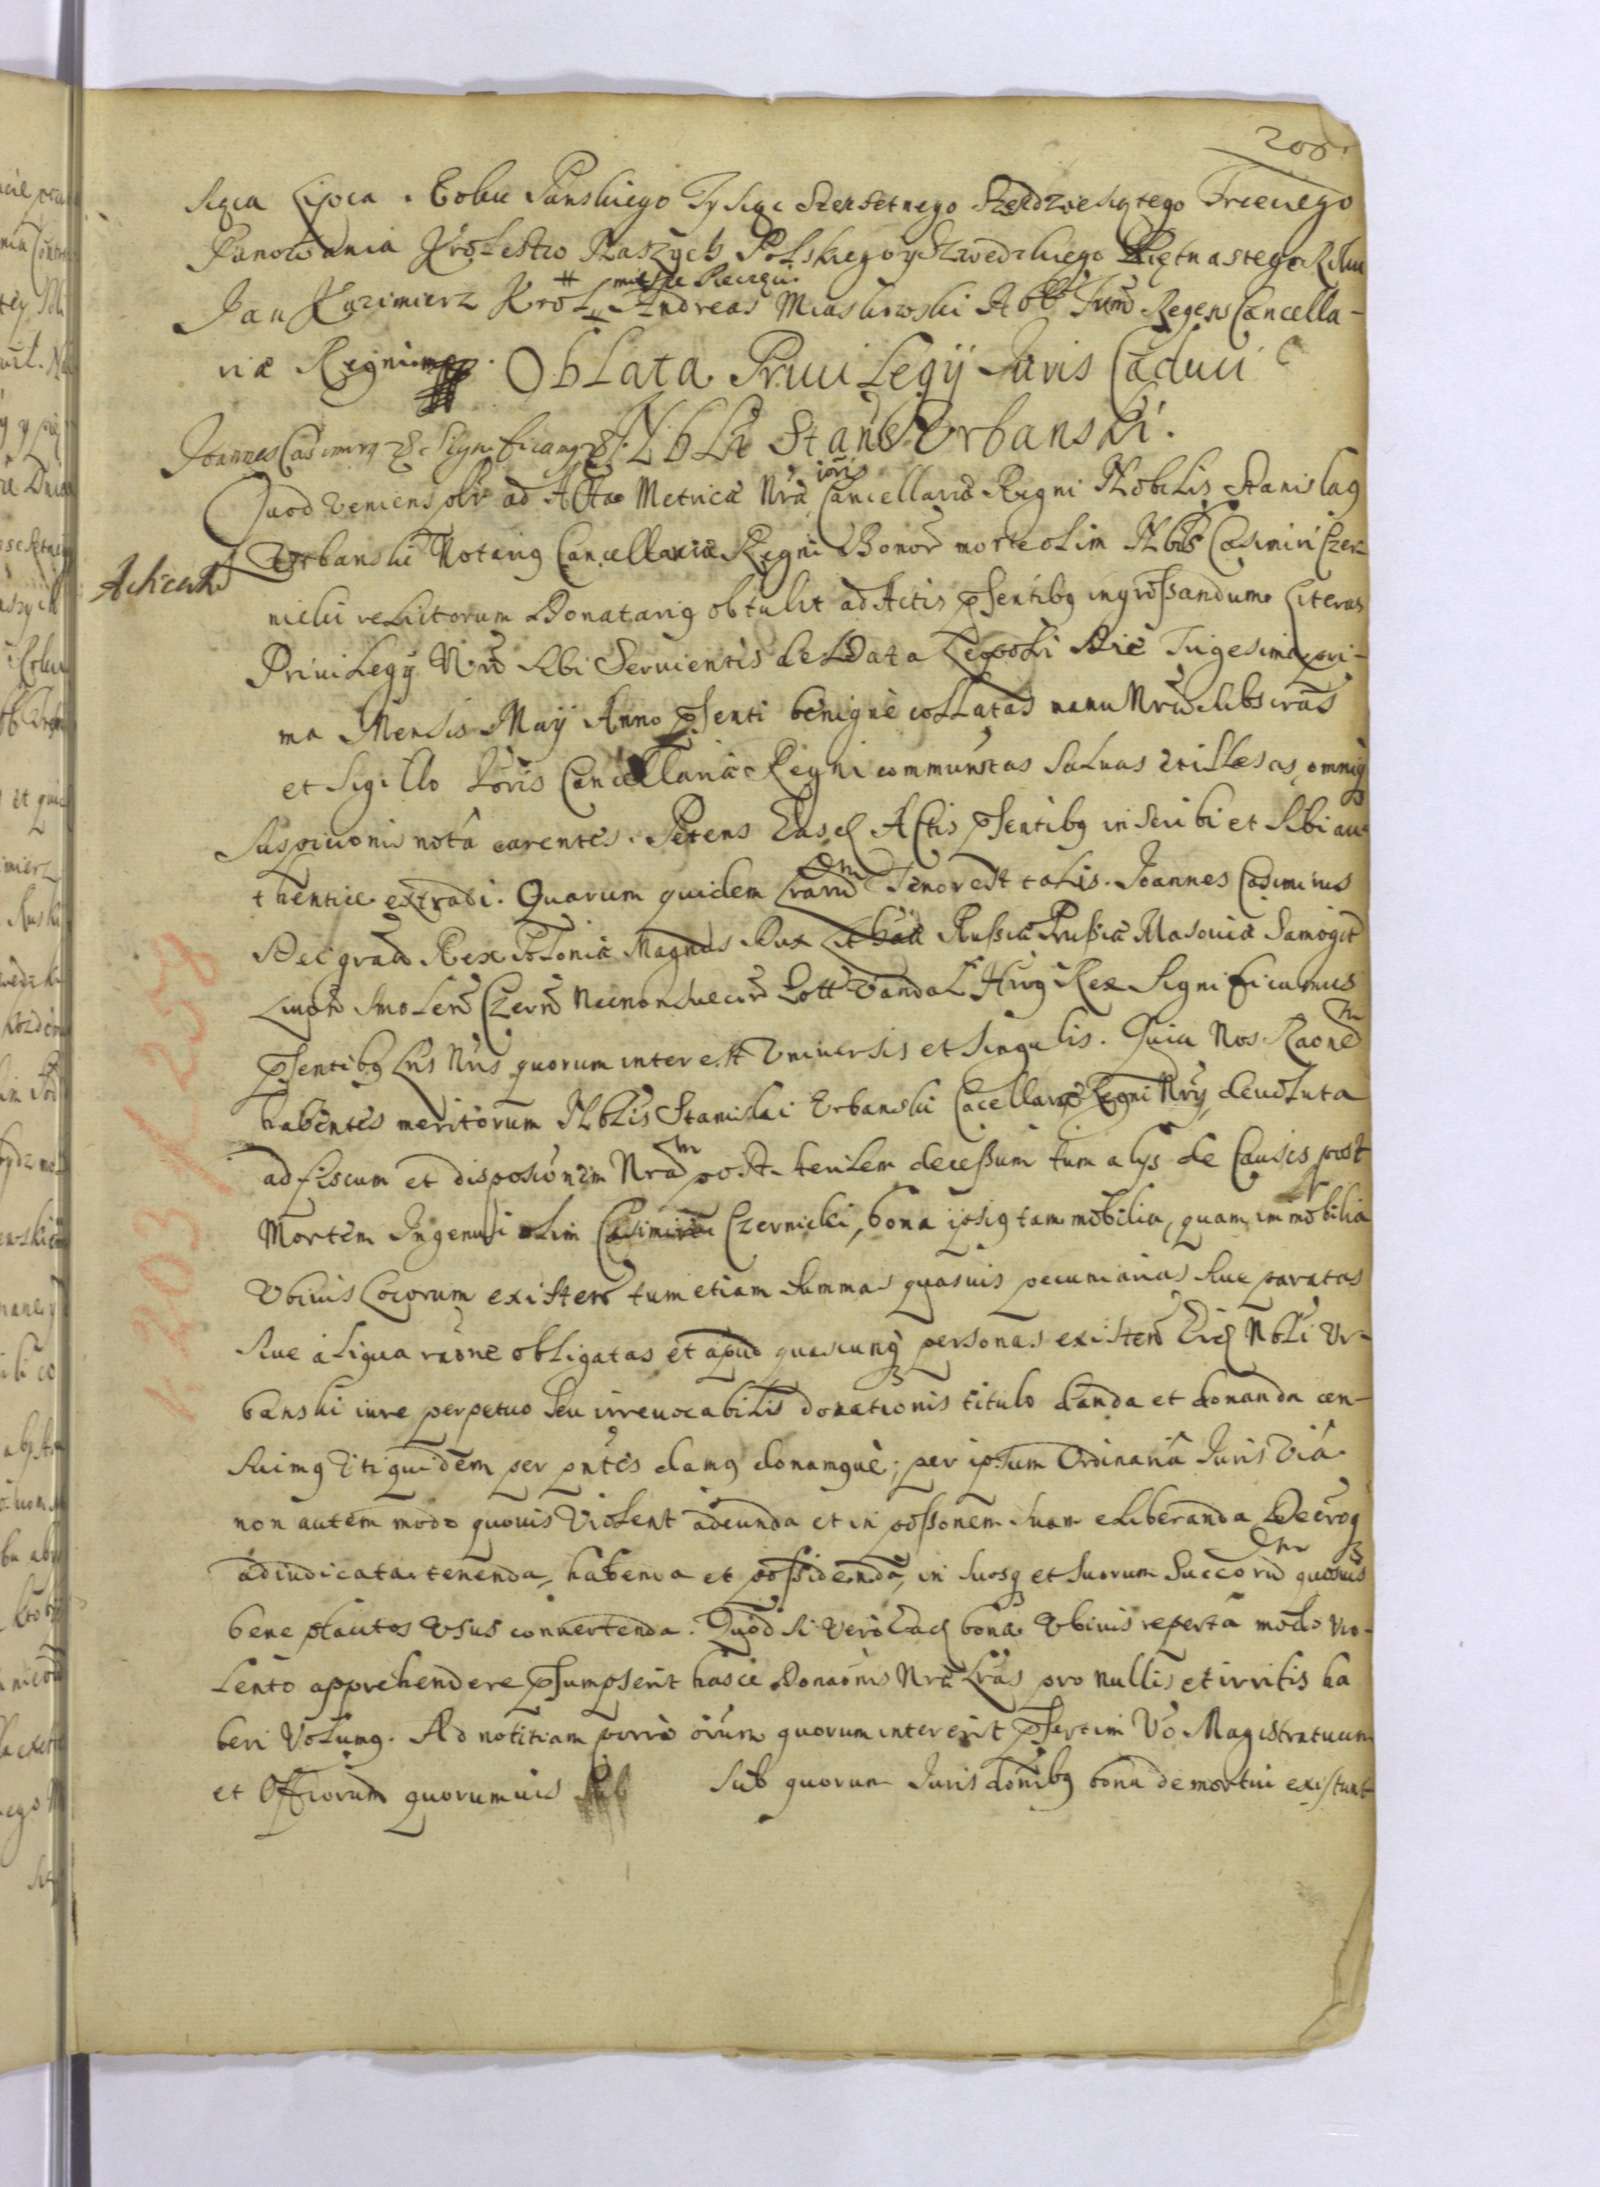 208.
siąca Lipca. Roku Panskiego Tysiąc Szesetnego Szescdziesiątego Trzeciego
Panowania Krolestw Naszych Polskiego y Szwedzkiego Piętnastego Roku
Jan Kazimierz Krol # mieysce Pieczęci
Andreas Miaskowski Abb Regens Cancella-
riæ Regni mp. Oblata Priuilegÿ Juris Caduci
Joannes Casimirq &c Significamq &c. Nbli Stanis Vrbanski.
Quod veniens plr ad Acta Metricæ Nræ Cancellariæ ioris Regni Nobilis Stanislaq
Acticat
Vrbanski Notariq Cancellariæ Regni Bonor morte olim Nblis Casimiri Czer-
nicki relictorum Donatariq obtulit ad Actis pſentibq ingroſsandum Literas
Priuilegÿ Nri sibi Seruientis de Data Leopoli Die Trigesima pri-
ma Mensis Maÿ Anno pſenti benigne collatas manu Nra subscras
et Sigillo ioris Cancellariæ Regni communitas saluas et illesas, omniq
Suspicionis nota carentes. Petens Easd Actis pſentibq inscribi et sibi au-
thentice extradi. Quarum quidem Lrarum Tenor est talis. Joannes Casimirus
Dei gratia Rex Poloniæ Magnus Dux Lithuaniæ Rußiæ Prußiæ Masouiæ Samogit
Liuon Smolen Czern Necnon Suecor Gott Vandal Hrvg Rex Significamus
pſentibq Lris Nris quorum interest Vniuersis et singulis. Quia Nos Raonem
habentes meritorum Nblis Stanislai Vrbanski Cacellariæ Regni Nrÿ, deuoluta
ad fiscum et disposionem Nram post sterilem deceßum tum alys de Causis post
Mortem Ingenui olim Casimiri Czernicki, bona ipsiq tam mobilia, quam immobilia
Vbiuis Locorum existen tum etiam summas quasuis pecuniarias siue paratas
siue aliqua raone obligatas et apud quascunq personas existen Eid Nbli Vr-
banski iure perpetuo seu irreuocabilis donationis titulo danda et donanda cen-
suimq Vti quidem per pntes damq donamque; per ipsum Ordinaria Juris Via
non autem modo quouis Violent adeunda et in poſsonem suam eliberanda Decroq
adiudicata tenenda, habenda et poſsidenda, in suosq et suorum Succorum quosuis
bene placitos Vsus conuertenda. Quod si vero Ead bona Vbiuis reperta modo vio-
lento apprehendere pſumpserit hasce Donaonis Nræ Lras pro nullis et irritis ha
beri Volumq. Ad notitiam porro oium quorum intererit pſertim Vo Magistratuum
et Offiorum quorumuis sub quorum Juris domibq bona demortui existunt